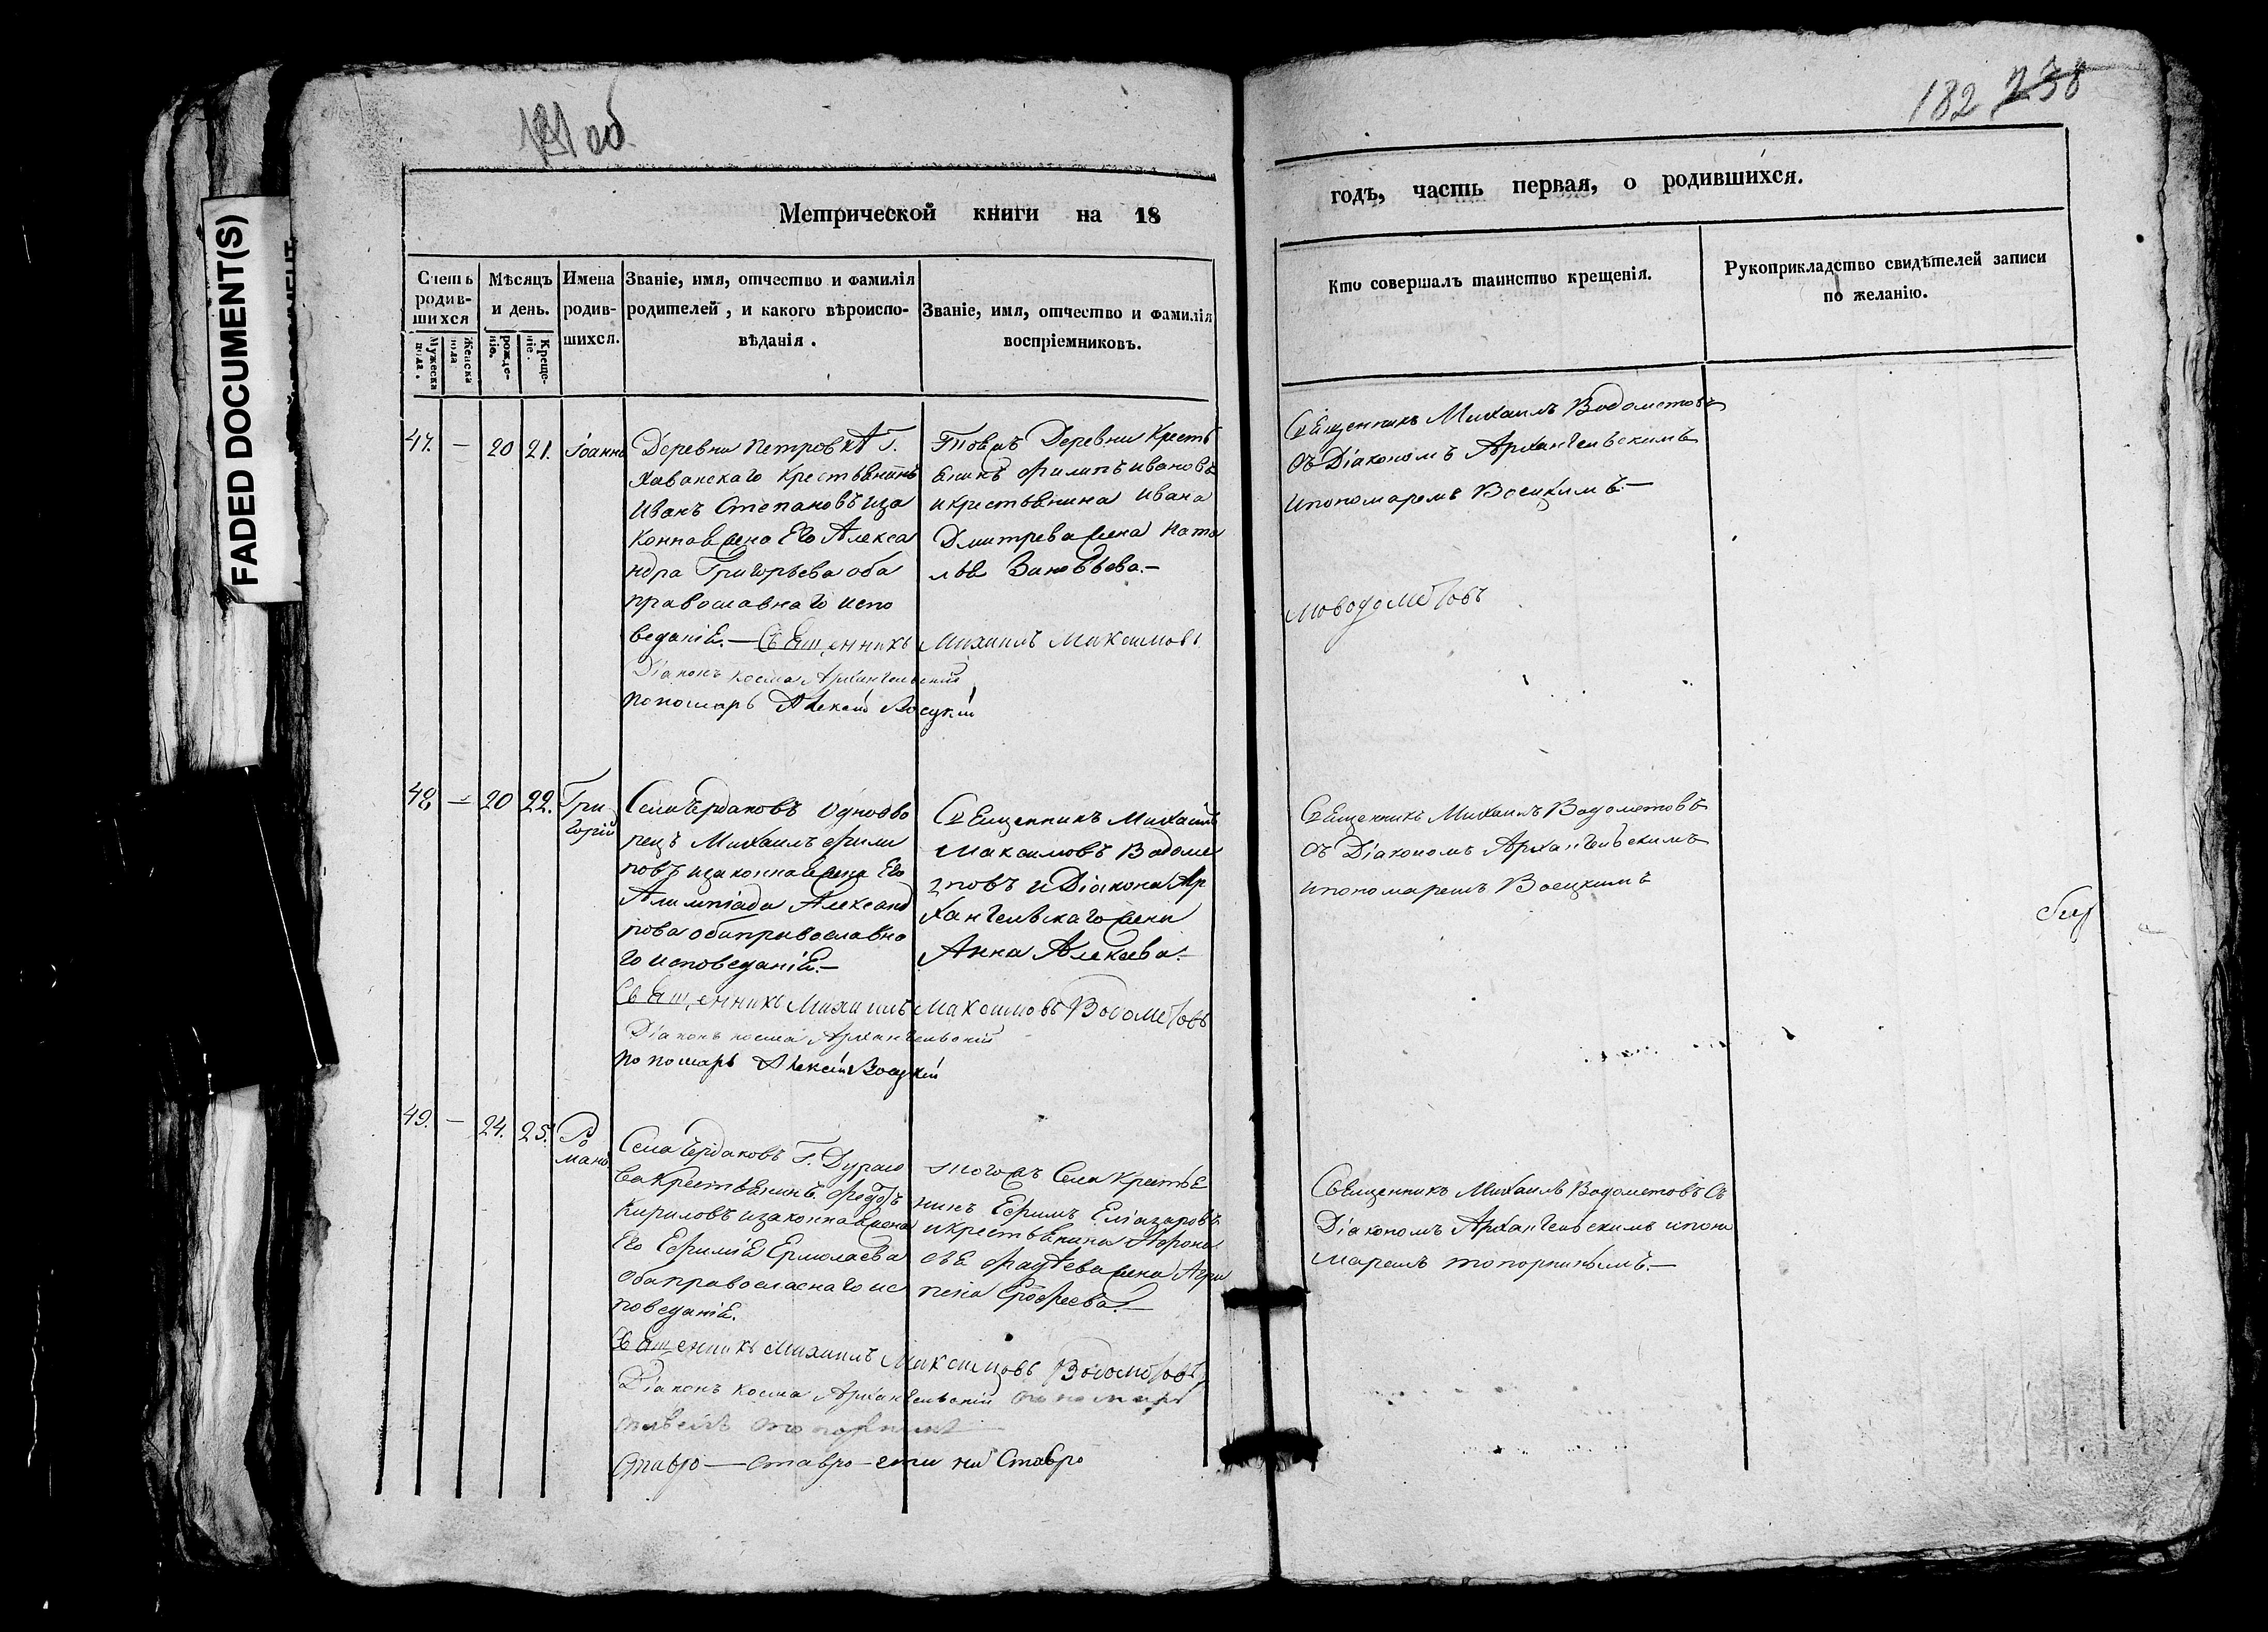 181 об
182 238
FADED DOCUMENT(S)
Метрической книги на 18
годъ, часть первая, о родившихся.
Счетъ родив-шихся
Мужеска пола.
Женска пола
Мѣсяцъ и день.
рожде-нія.
Креще-нія.
Имена родив-шихся.
Званіе, имя, отчество и фамилія
родителей, и какого вѣроиспо-
вѣданія.
Званіе, имя, отчество и фамилія
воспріемниковъ.
Кто совершалъ таинство крещенія.
Рукоприкладство свидѣтелей записи
по желанію.
47. — 20 21. Іоаннъ
Деревни Петровки Г.
Хованскаго крестьянинъ
Иванъ Степановъ и за
конная жена Его Алекса
ндра Григорьева оба
православнаго испо
веданія. — Священникъ Михаилъ Максимовъ
Діаконъ Косма Архангельскій
пономарь Алексій Восцкій
Тоежъ Деревни Кресть
янинъ Филипъ Ивановъ
и крестьянина Ивана
Дмитрева жена Ната
лья Зиновьева. —
Священникъ Михаилъ Водометовъ
съ Діакономъ Архангельскимъ
и пономаремъ Восцкимъ. —
Водометовъ
48 — 20 22. Гри
горій
Села Чердаковъ Однодво
рецъ Михаилъ Фили
повъ и законная жена Его
Алимпіада Александ
рова оба православна
го исповеданія. —
Священникъ Михаилъ Максимовъ Водометовъ
Діаконъ Косма Архангельскій
пономарь Алексій Восцкій
Священникъ Михаилъ
Максимовъ Водоме
товъ и Діакона Ар
хангельскаго жена
Анна Алексева. —
Священникъ Михаилъ Водометовъ
съ Діакономъ Архангельскимъ
и пономаремъ Восцкимъ
49. — 24. 25. Ро
манъ
Села Чердаковъ Г. Дурасо
ва Крестьянинъ Федоръ
Кириловъ и законная жена
Его Ефимія Ермолаева
оба православнаго ис
поведанія.
Священникъ Михаилъ Максимовъ Водометовъ
Діаконъ Косма Архангельскій пономарь
Топорнинъ
Ставро — Ставро
Ставро
тогожъ Села Крестья
нинъ Ефимъ Еліазаровъ
и крестьянина Афона
сья Фадѣева жена Агри
пена Ерофеева. —
Священникъ Михаилъ Водометовъ съ
Діакономъ Архангельскимъ и поно
маремъ Топорнинымъ. —